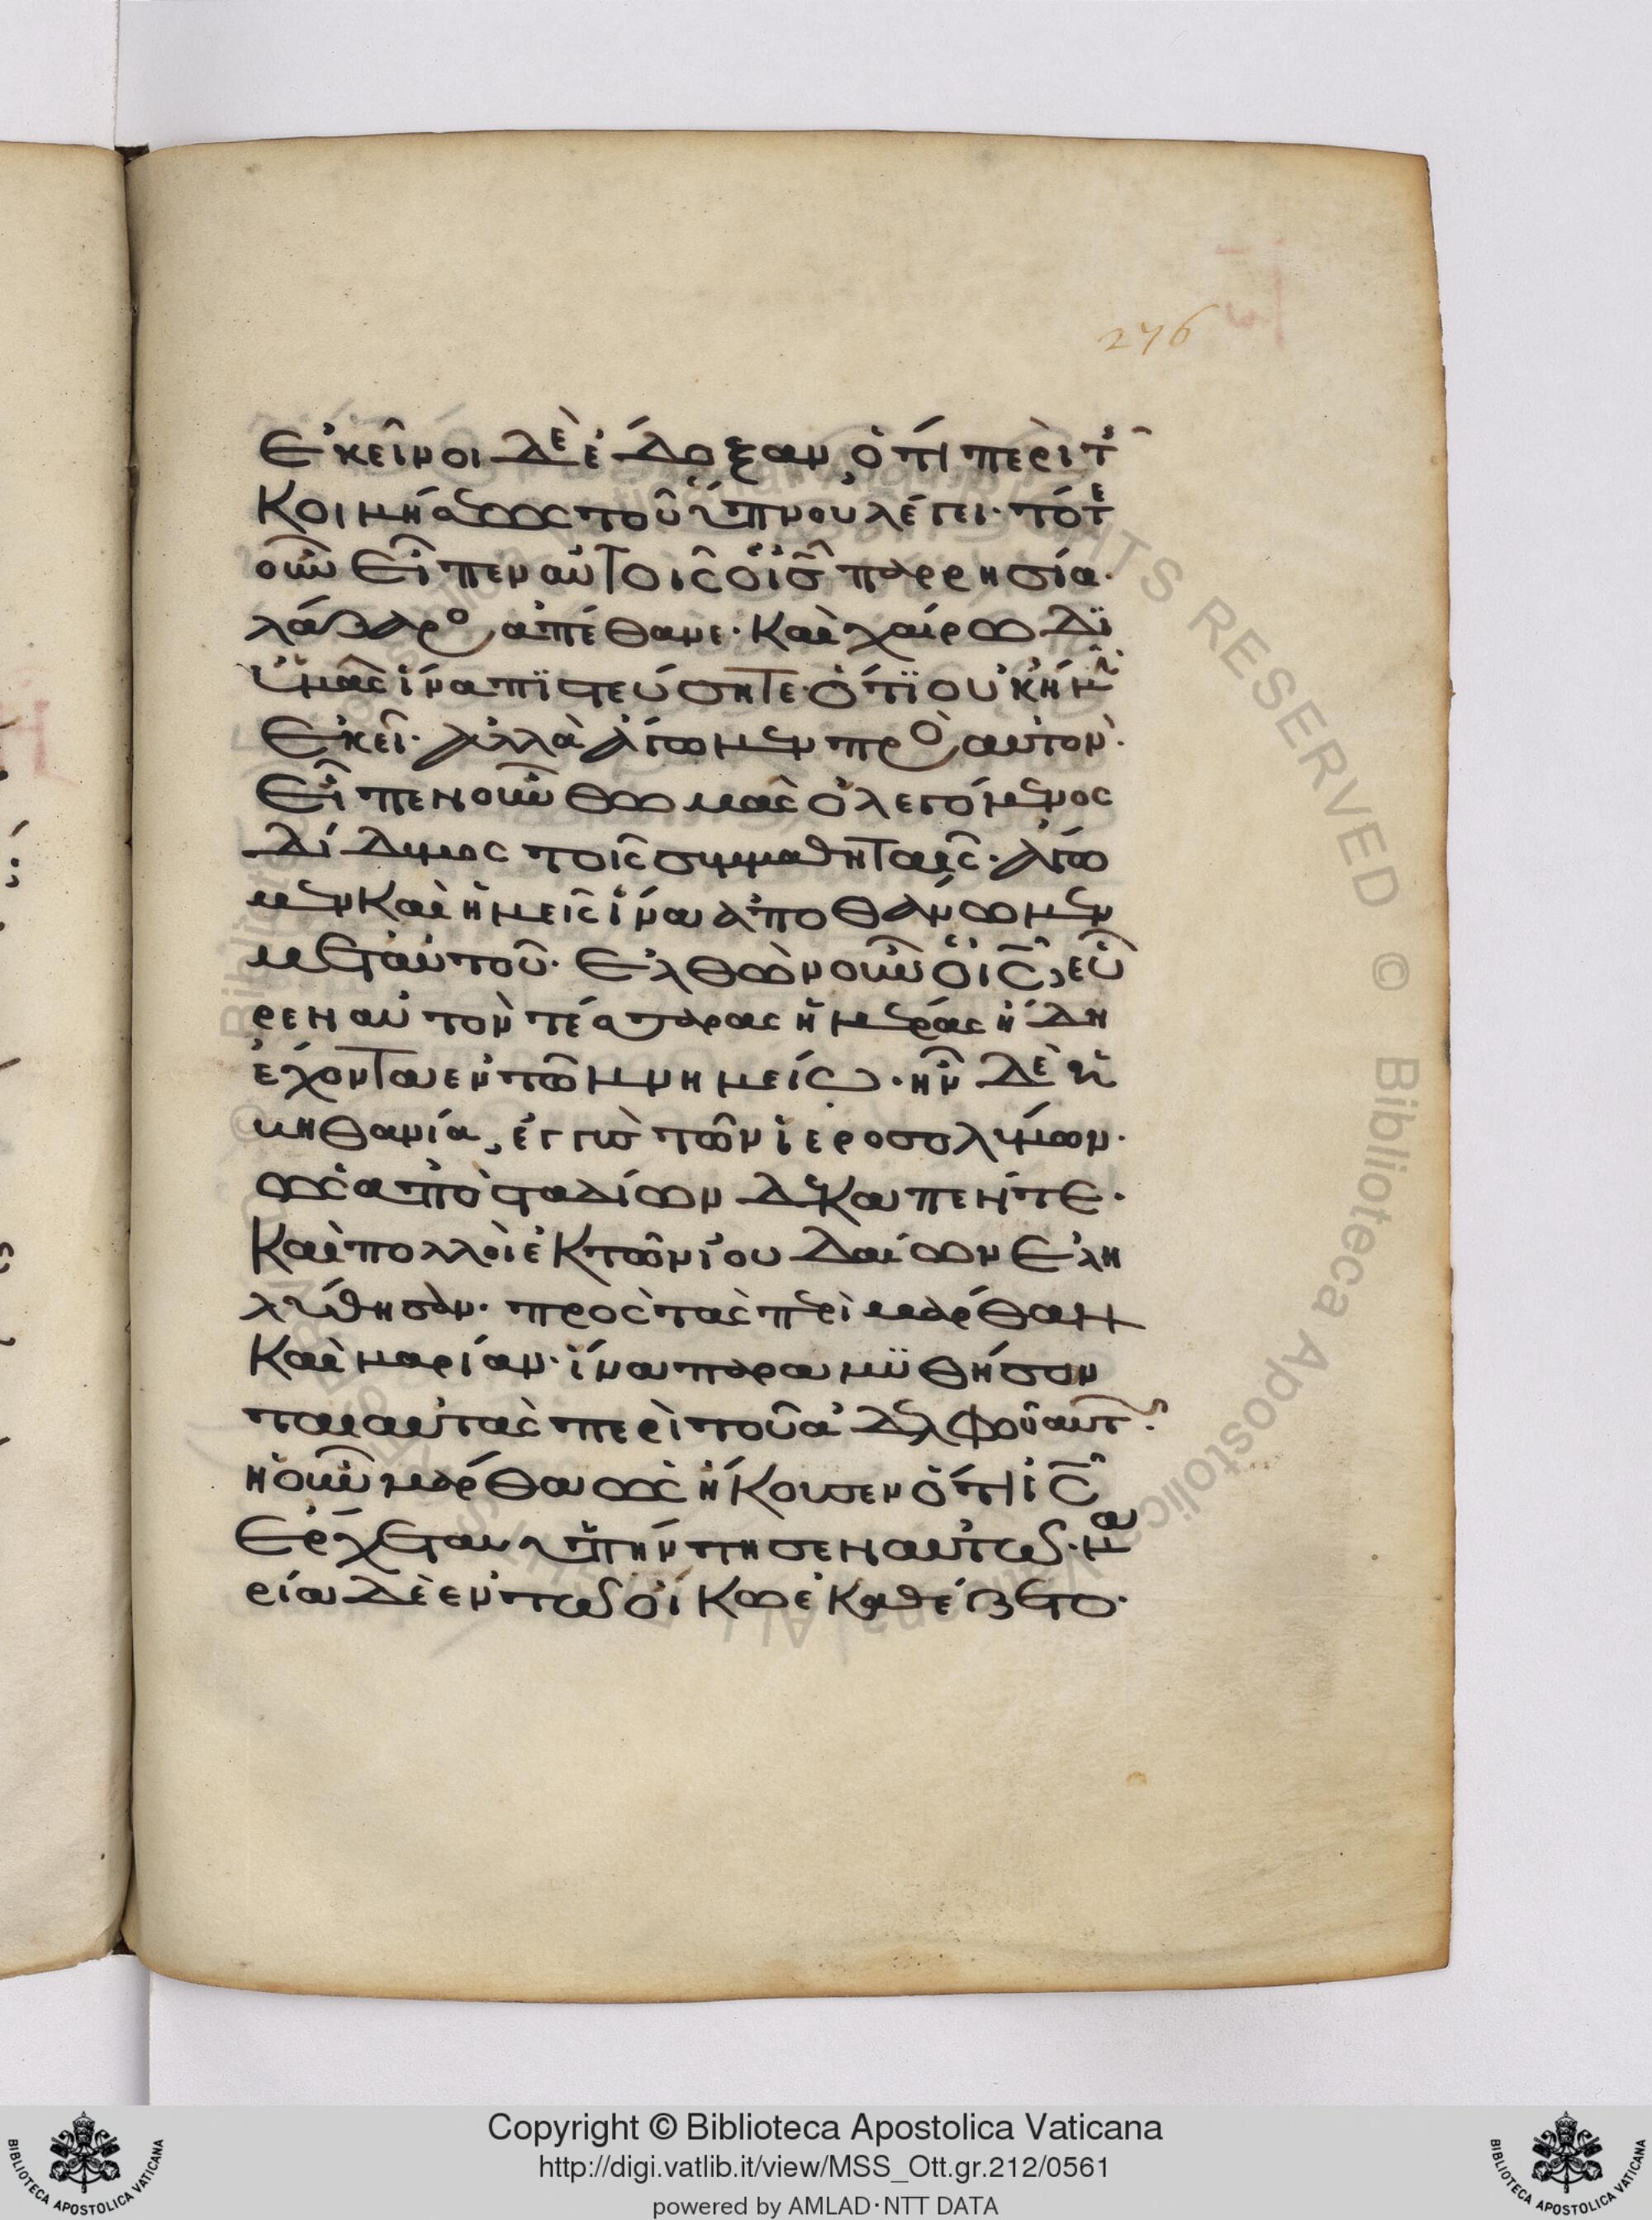 276
ἐκεῖνοι δὲ ἔδοξαν ὅτι περὶ τ̑
κοιμήσεως τοῦ ὕπνου λέγει· τότε
οὖν εἶπεν αὐτοῖς ὁ ἰς̅ παρρησία·
λάζαρο ἀπέθανε· καὶ χαίρω δϊ
ὑμᾶς ἵνα πϊστεύσητε· ὅτϊ οὐκ ἤμην
ἐκεῖ· ἀλλὰ ἄγωμεν προ αὐτὸν·
εἶπεν οὖν θωμᾶς ὁ λεγόμενος
δίδυμος τοῖς συμμαθηταῖς· ἄγω
μεν καὶ ἡμεῖς ἵνα ἀποθάνωμεν
μετ' αὐτοῦ· ἐλθὼν οὖν ὁ ἰς̅, εὗ
ρεν αὐτὸν τέσσαρας ἡμέρας ἤδη
ἔχοντα ἐν τῶ μνημείω· ἦν δὲ ἡ
βηθανία, ἐγγὺς τῶν ἱεροσολύμων·
ὡς ἀπὸ σταδίων δεκαπέντε·
καὶ πολλοὶ ἐκ τῶν ἰουδαίων ἐλη
λύθησαν· πρὸς τὰς περὶ μάρθαν
καὶ μαρίαν· ἵνα παραμϋθήσον
ται αὐτὰς περὶ τοῦ ἀδελφοῦ αὐτ·
ἡ οὖν μάρθα ὡς ἤκουσεν ὅτι ἰς̅
ἔρχεται ὑπήντησεν αὐτῶ· μα
ρία δὲ ἐν τῶ οἴκω ἐκαθέζετο·
© Biblioteca Apostolica Vaticana ALL RIGHTS RESERVED
BIBLIOTECA APOSTOLICA VATICANA
Copyright © Biblioteca Apostolica Vaticana
http://digi.vatlib.it/view/MSS_Ott.gr.212/0561
powered by AMLAD·NTT DATA
BIBLIOTECA APOSTOLICA VATICANA